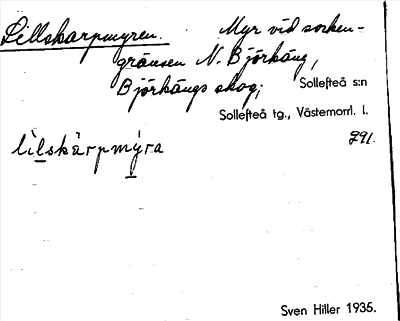 Lillskarpmyren. Myr vid socken-
gränsen N. Björkäng,
Björkängs skog; Sollefteå s:n
Sollefteå tg., Västernorrl. l.
lìlskàrpmýra 291.
Sven Hiller 1935.